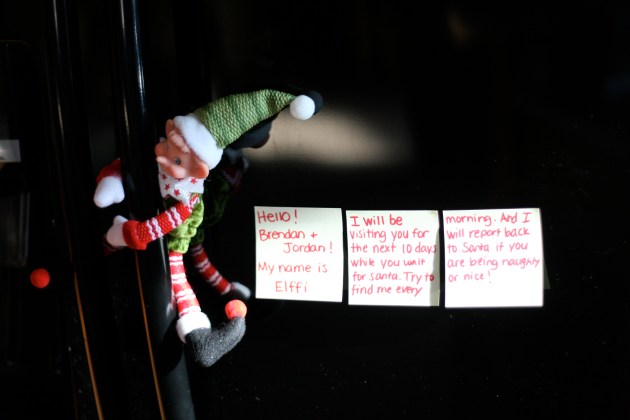 Hello!
Brendan +
Jordan!
My name is
Elffi
I will be
visiting you for
the next 10 days
while you wait
for santa. Try to
find me every
morning. And I
will report back
to Santa if you
are being naughty
or nice!